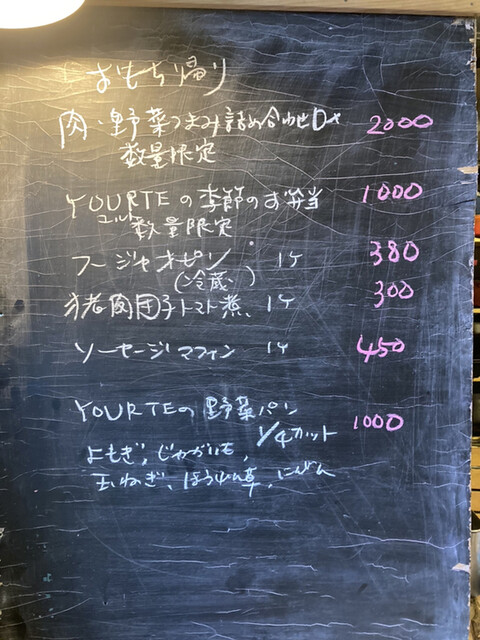 おもち帰り
肉・野菜つまみ詰め合わせ 2000
数量限定
YOURTEの季節のお弁当 1000
ユルト 数量限定
フージャオビン 1ケ 380
(冷蔵)
猪肉団子トマト煮、1ケ 300
ソーセージマフィン 1ケ 450
YOURTEの野菜パン 1000
1/4カット
よもぎ,じゃがいも,
玉ねぎ、ほうれん草,にんじん